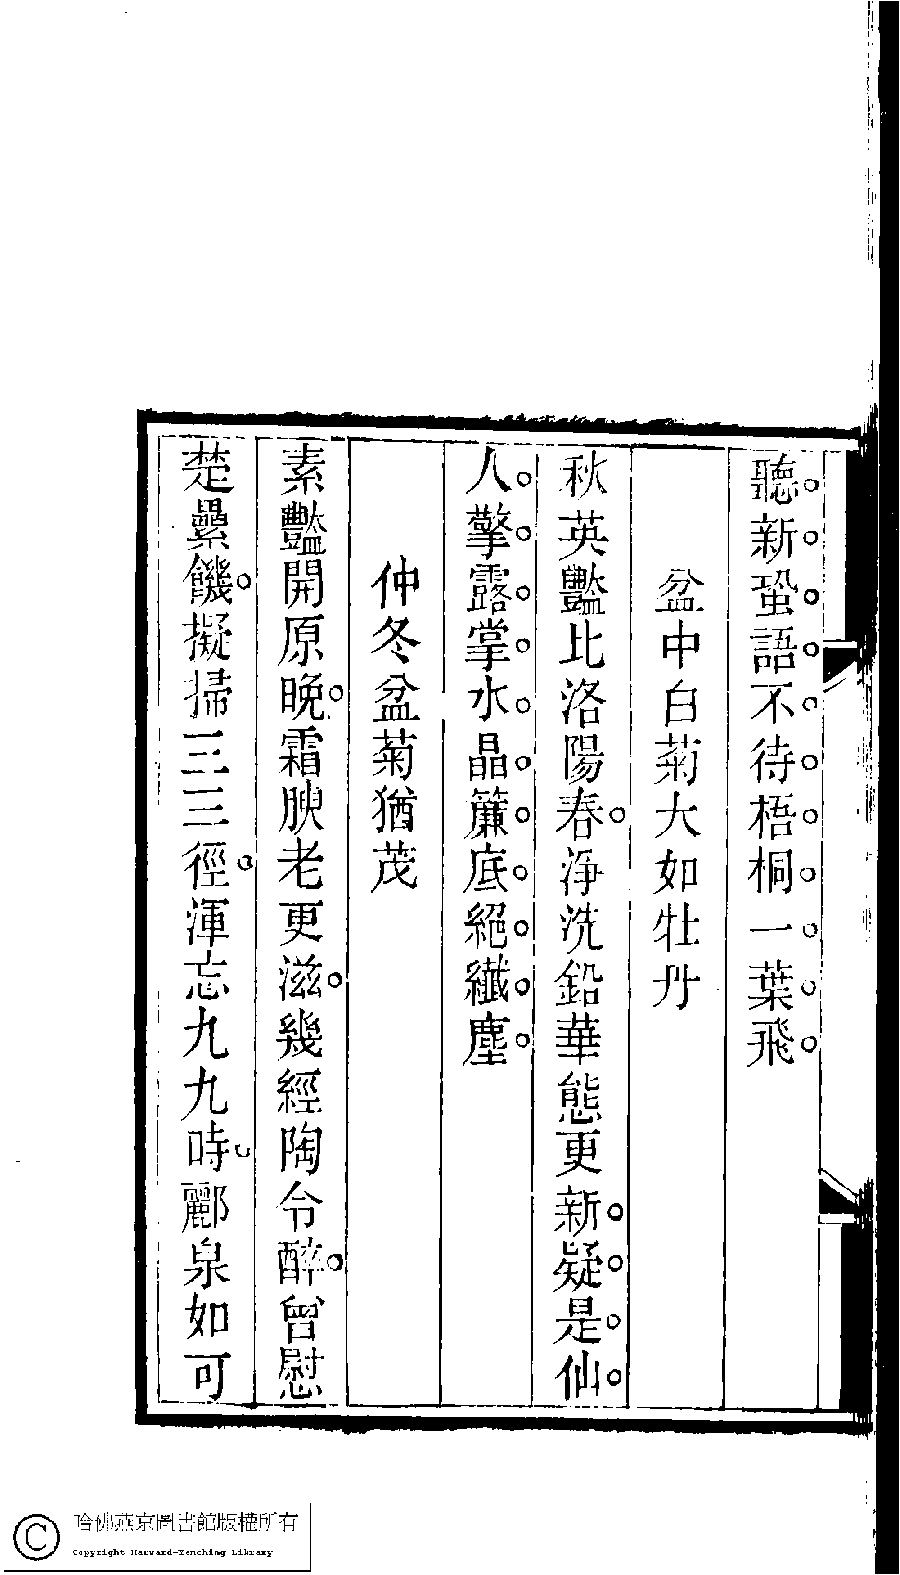 聽新蛩語不待梧桐一葉飛
盆中白菊大如牡丹
秋英豔比洛陽春淨洗鉛華態更新疑是仙
人擎露掌水晶簾底絕纖塵
仲冬盆菊猶茂
素豔開原晚霜腴老更滋幾經陶令醉曾慰
楚纍饑擬掃三三徑渾忘九九時酈泉如可
哈佛燕京圖書館版權所有
Copyright Harvard-Yenching Library